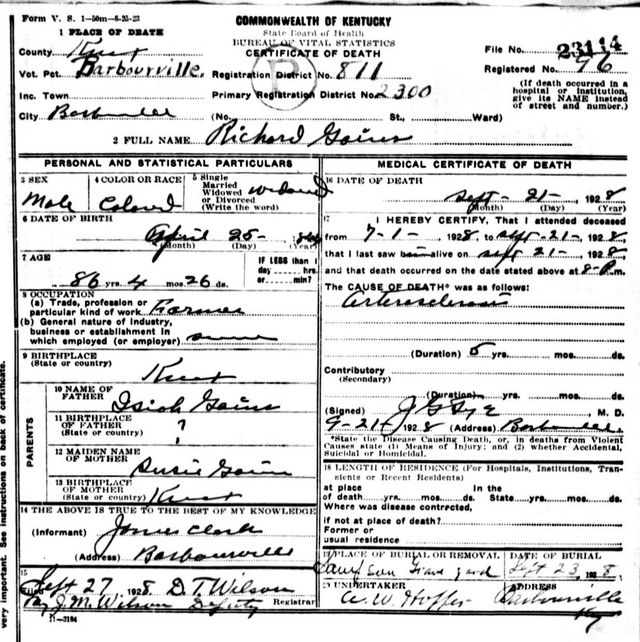 Form V. S. 1-50m-8-25-23
COMMONWEALTH OF KENTUCKY
1 PLACE OF DEATH
State Board of Health
BUREAU OF VITAL STATISTICS
CERTIFICATE OF DEATH
County Knox
File No. 23114
Vot. Pct. Barbourville.
Registration District No. 811
Registered No. 96
Inc. Town
Primary Registration District No. 2300
(If death occurred in a hospital or institution, give its NAME instead of street and number.)
City Barbourville
(No. St., Ward)
2 FULL NAME Richard Gains
PERSONAL AND STATISTICAL PARTICULARS
3 SEX
Male
4 COLOR OR RACE
Colored
5 Single Married Widowed or Divorced (Write the word)
Widowed
6 DATE OF BIRTH
April 25-
(Month) (Day) (Year)
7 AGE
86 yrs. 4 mos. 26 ds.
IF LESS than 1 day hrs. or min.?
8 OCCUPATION
(a) Trade, profession or particular kind of work Farmer
(b) General nature of industry, business or establishment in which employed (or employer)
9 BIRTHPLACE
(State or country)
Knox
PARENTS
10 NAME OF FATHER
Isiah Gains
11 BIRTHPLACE OF FATHER
(State or country)
?
12 MAIDEN NAME OF MOTHER
Susie Gains
13 BIRTHPLACE OF MOTHER
(State or country)
Knox
14 THE ABOVE IS TRUE TO THE BEST OF MY KNOWLEDGE
(Informant) James Clark
(Address) Barbourville
15
Filed Sept 27 1928. D. T. Wilson
By J. M. Wilson Deputy Registrar
11-3184
MEDICAL CERTIFICATE OF DEATH
16 DATE OF DEATH
Sept- 21- 1928
(Month) (Day) (Year)
17 I HEREBY CERTIFY, That I attended deceased
from 7-1- 1928, to Sept-21-, 1928
that I last saw him alive on Sept 21-, 1928,
and that death occurred on the date stated above at 8-P.m.
The CAUSE OF DEATH* was as follows:
Arteriosclerosis
(Duration) 5 yrs. mos. ds.
Contributory
(Secondary)
(Duration) yrs. mos. ds.
(Signed) M. D.
9-21-, 1928 (Address) Barbourville
*State the Disease Causing Death, or, in deaths from Violent Causes state (1) Means of Injury; and (2) whether Accidental, Suicidal or Homicidal.
18 LENGTH OF RESIDENCE (For Hospitals, Institutions, Transients or Recent Residents)
at place In the
of death yrs. mos. ds. State yrs. mos. ds.
Where was disease contracted,
if not at place of death?
Former or
usual residence
19 PLACE OF BURIAL OR REMOVAL
Grave yard
DATE OF BURIAL
Sept 23, 1928.
20 UNDERTAKER
A. W. Hopper
Barbourville
Ky
very important. See instructions on back of certificate.